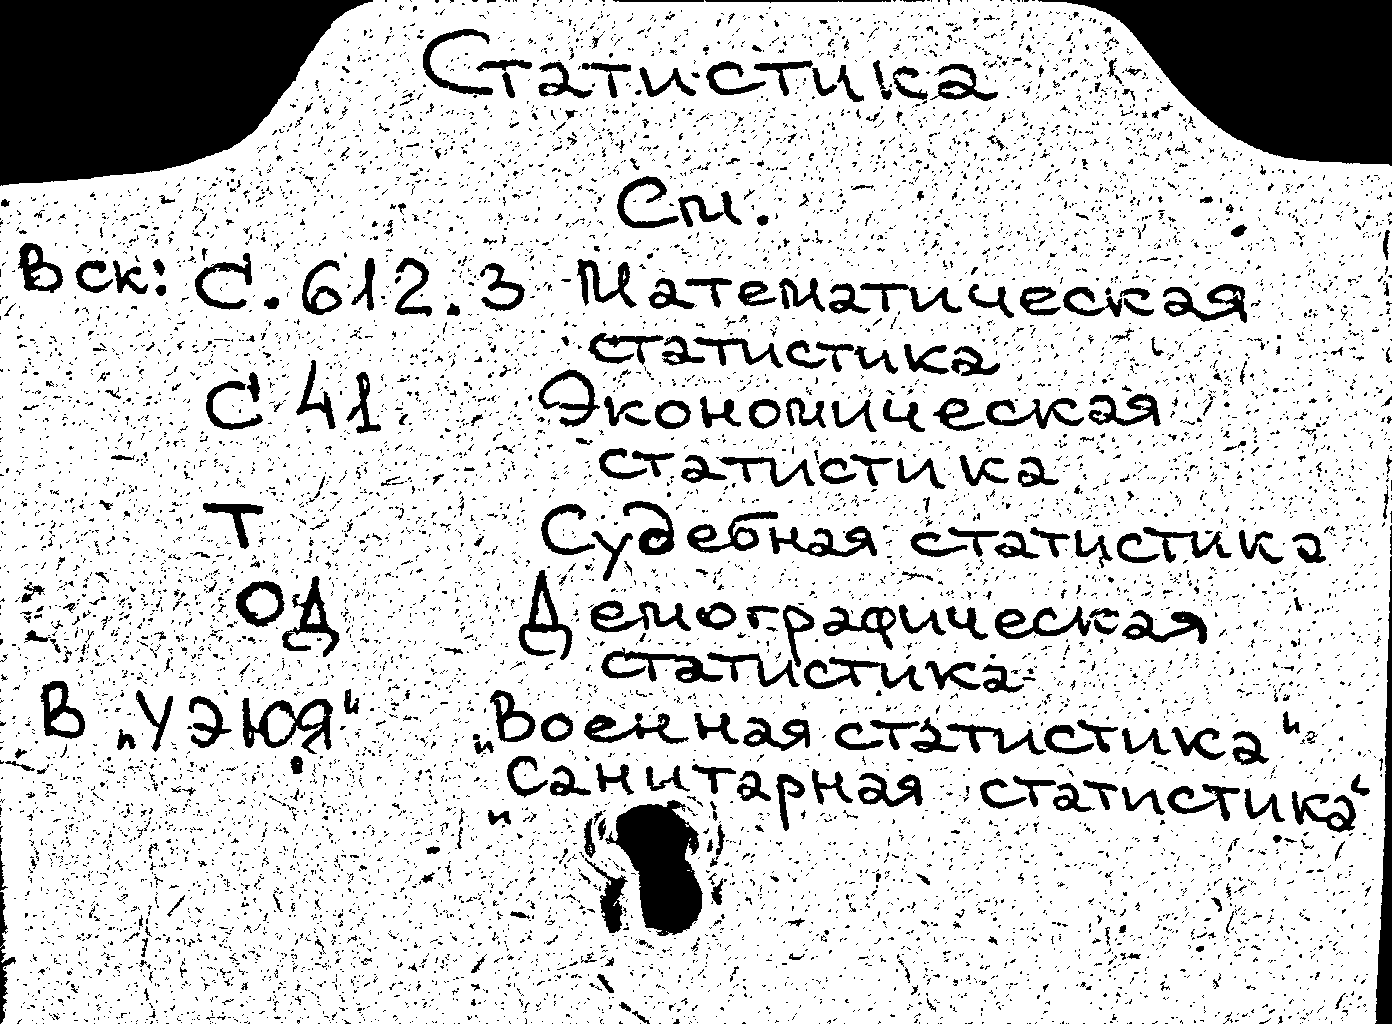 Статистика
См.
В ск: С.612.3 Математическая
статистика
С 41 Экономическая
статистика
Т Судебная статистика
ОД Демографическая
статистика
В „УЭЮЯ“ „Военная статистика“
„Санитарная статистика“